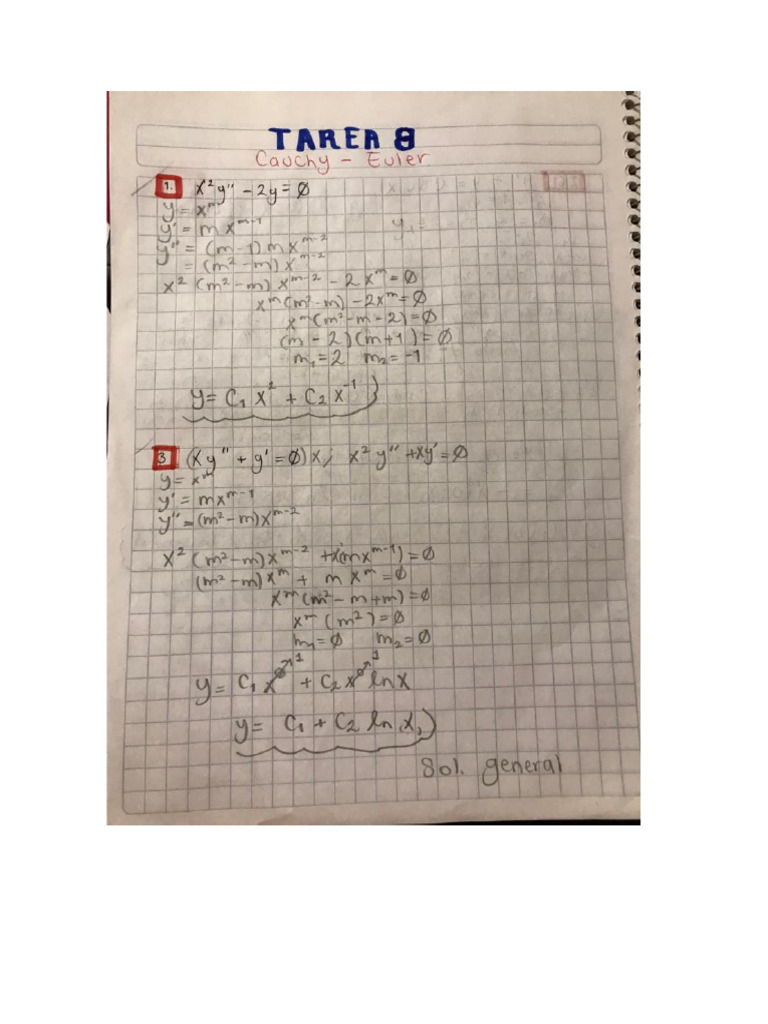 TAREA 8
Cauchy - Euler
1. x²y'' - 2y = Ø
y = x^m
y' = m x^(m-1)
y'' = (m-1) m x^(m-2)
= (m² - m) x^(m-2)
x² (m² - m) x^(m-2) - 2 x^m = Ø
x^m (m² - m) - 2x^m = Ø
x^m (m² - m - 2) = Ø
(m - 2)(m + 1) = Ø
m₁ = 2 m₂ = -1
y = C₁ x² + C₂ x^-1
3 (x y'' + y' = Ø) x; x² y'' + xy' = Ø
y = x^m
y' = mx^(m-1)
y'' = (m² - m) x^(m-2)
x² (m² - m) x^(m-2) + x(m x^(m-1)) = Ø
(m² - m) x^m + m x^m = Ø
x^m (m² - m + m) = Ø
x^m (m²) = Ø
m₁ = Ø m₂ = Ø
y = C₁ x^Ø↗1 + C₂ x^Ø↗1 ln x
y = C₁ + C₂ ln x
Sol. general